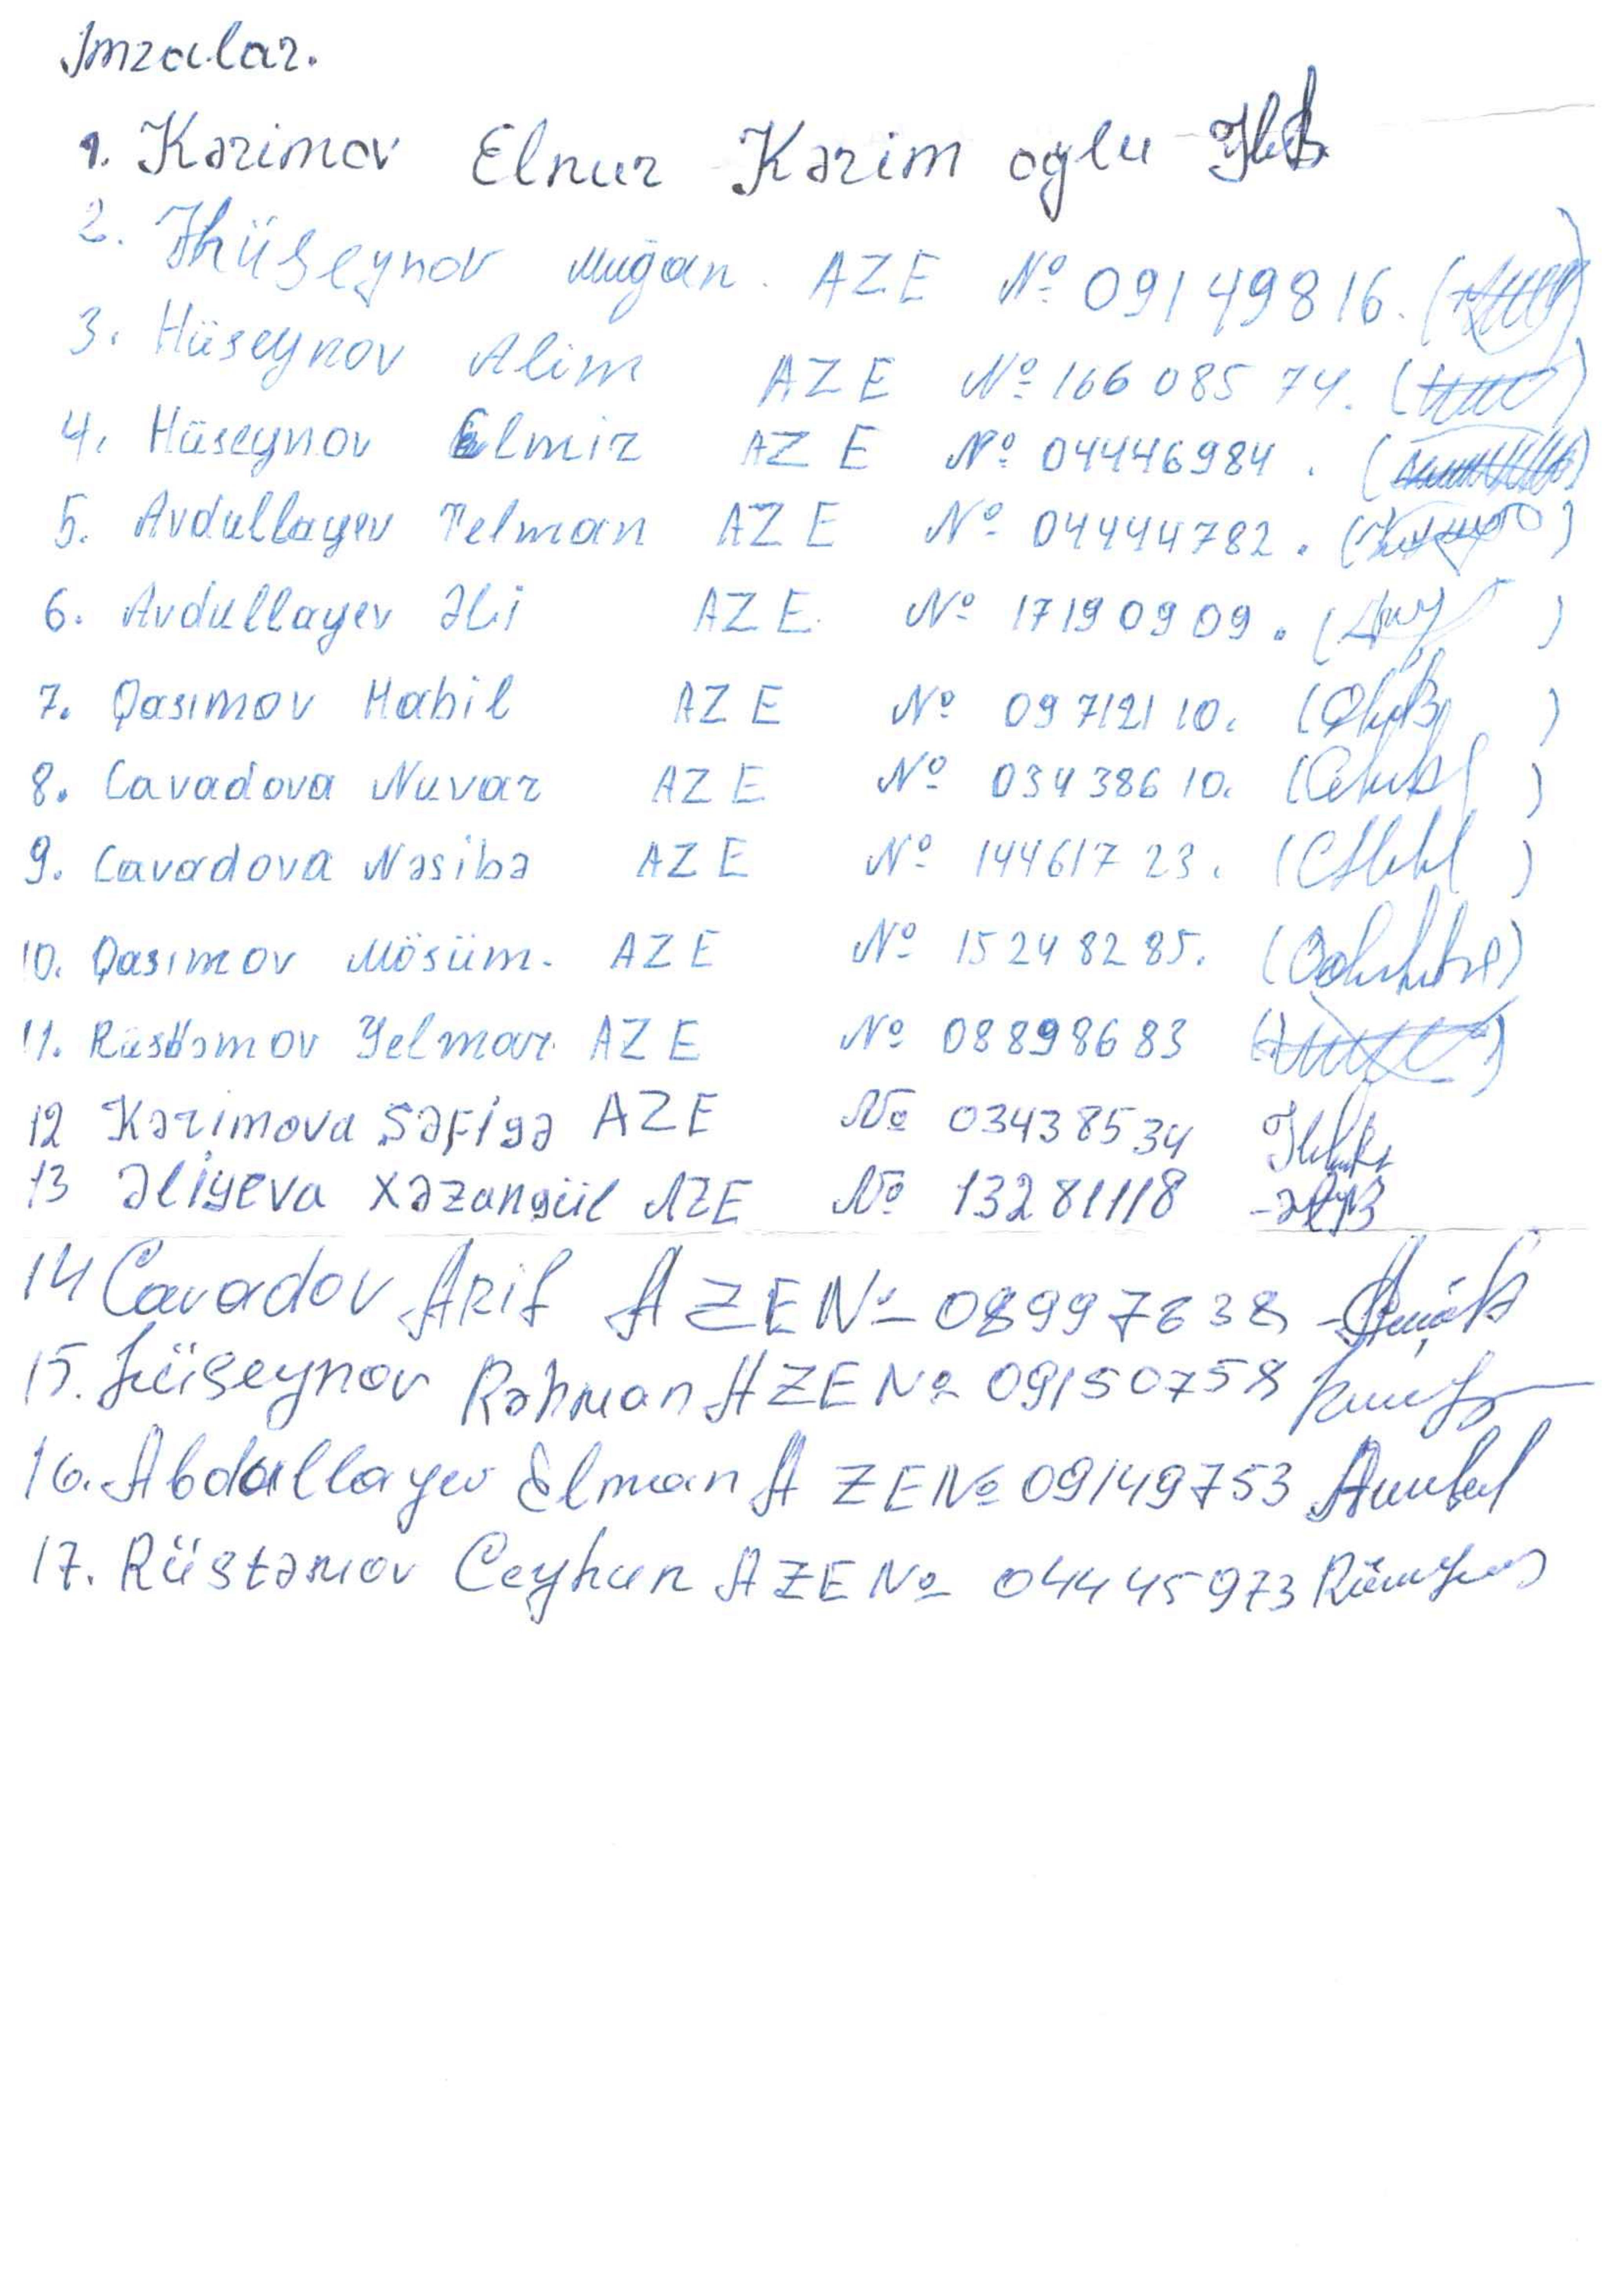 İmzalar.
1. Kərimov Elnur Kərim oğlu
2. Hüseynov Muğan. AZE № 09149816.
3. Hüseynov Alim AZE № 16608574.
4. Hüseynov Elmir AZE № 04446984.
5. Avdullayev Telman AZE № 04444782.
6. Avdullayev Əli AZE. № 17190909.
7. Qasımov Habil AZE № 09712110.
8. Cavadova Nuvar AZE № 03438610.
9. Cavadova Nəsibə AZE № 14461723.
10. Qasımov Mösüm. AZE № 15248285.
11. Rüstəmov Yelmar. AZE № 08898683
12 Kərimova Səfigə AZE № 03438534
13 Əliyeva Xəzangül AZE № 13281118
14 Cavadov Arif AZE № 08997638
15. Hüseynov Rəhman AZE № 09150758
16. Abdullayev Elman AZE № 09149753
17. Rüstəmov Ceyhun AZE № 04445973